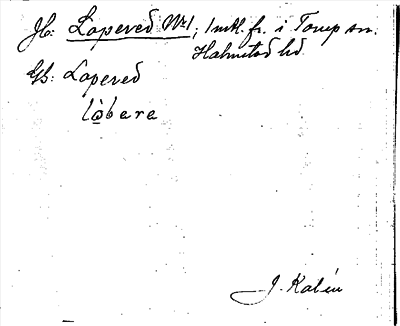 Jb: Lopered Nr 1, 1 mtl. fr. i Torup sn.
Halmstad hd.
Gb: Lopered
lo̱bere
J. Kalén